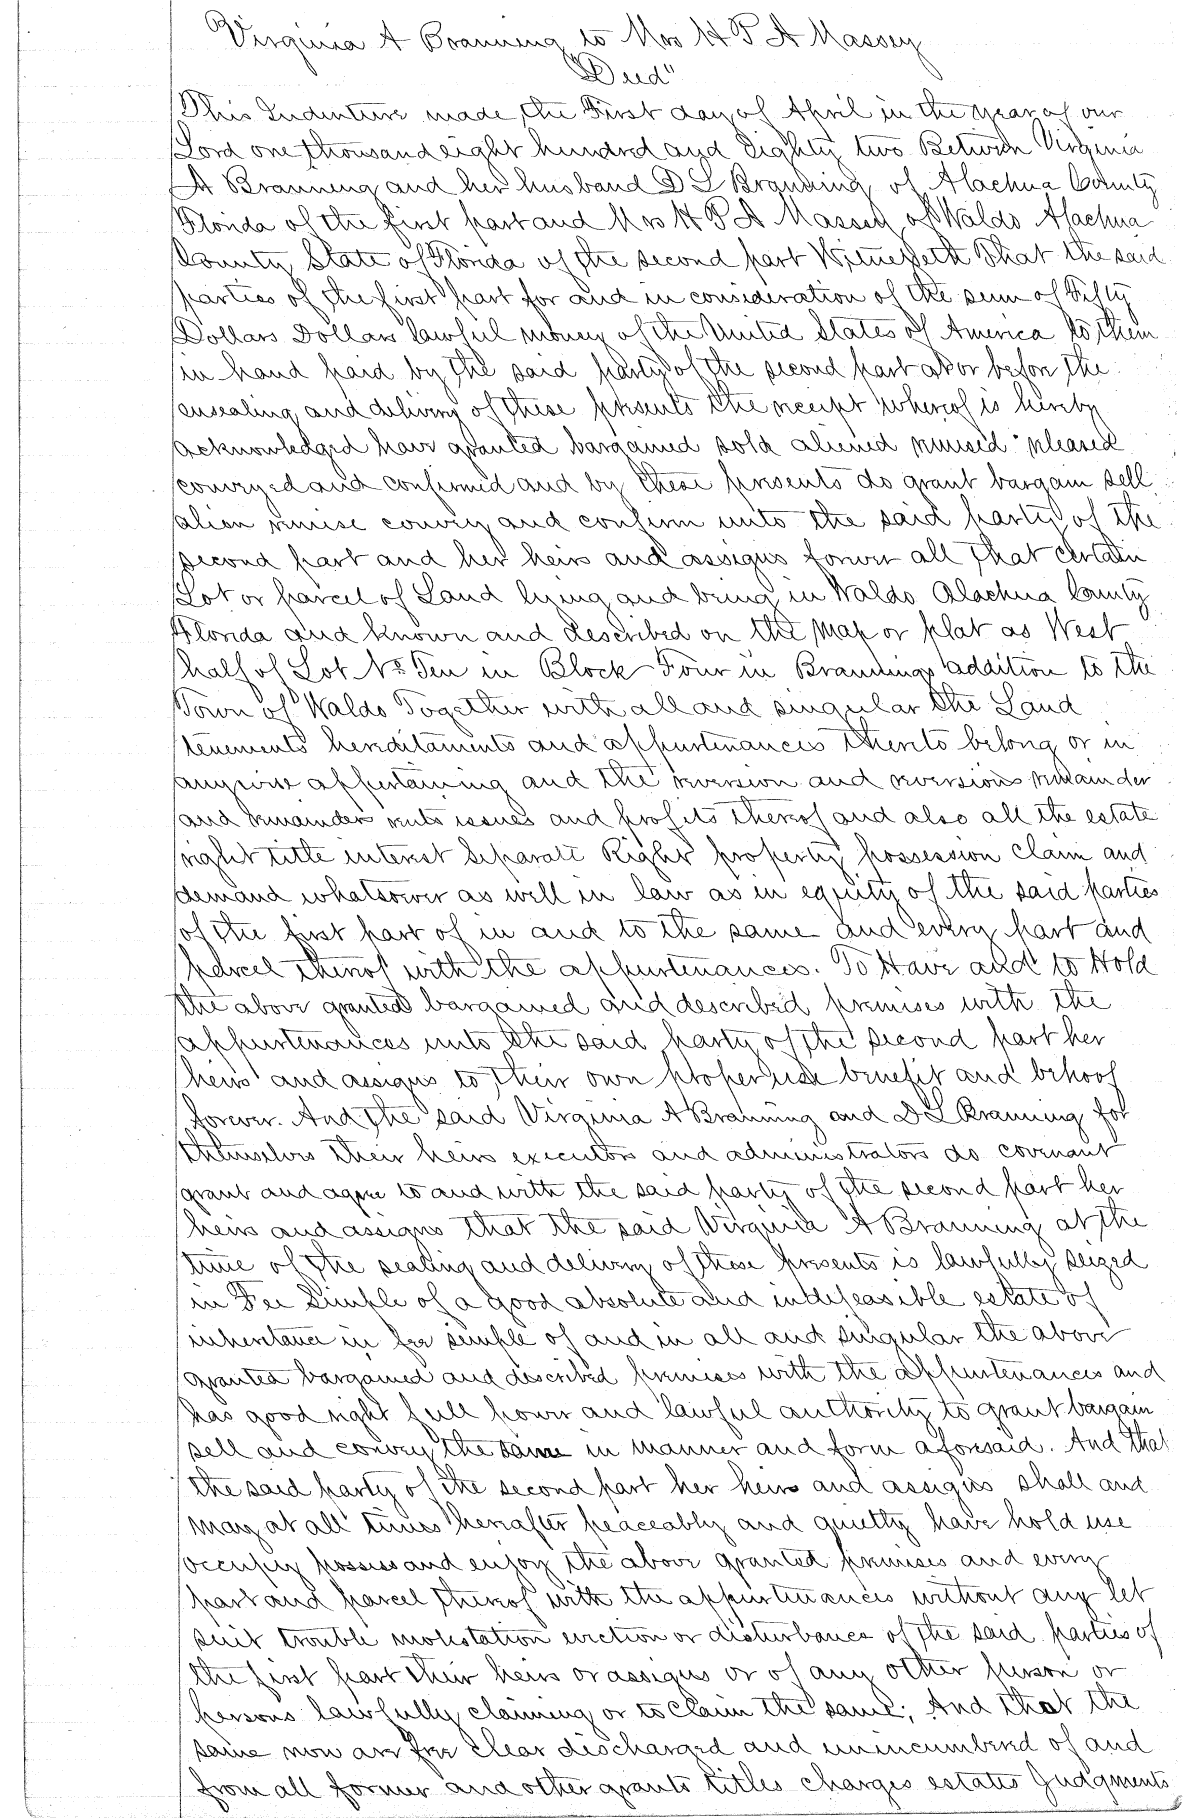 Virginia A Branning to Mrs H P A Massey
"Deed"
This Indenture made the First day of April in the year of our
Lord one thousand eight hundred and Eighty two Between Virginia
A Branning and her husband D L Branning of Alachua County
Florida of the first part and Mrs H P A Massey of Waldo Alachua
County State of Florida of the second part Witnesseth That the said
parties of the first part for and in consideration of the sum of Fifty
Dollars Dollars lawful money of the United States of America to them
in hand paid by the said party of the second part at or before the
ensealing and delivery of these presents the receipt whereof is hereby
acknowledged have granted bargained sold aliened remised released
conveyed and confirmed and by these presents do grant bargain sell
alien remise convey and confirm unto the said party of the
second part and her heirs and assigns forever all that certain
Lot or parcel of Land lying and being in Waldo Alachua County
Florida and known and described on the map or plat as West
half of Lot No Ten in Block Four in Brannings addition to the
Town of Waldo Together with all and singular the Land
tenements hereditaments and appurtenances thereto belong or in
anywise appurtaining and the reversion and reversions remainder
and remainders rents issues and profits thereof and also all the estate
right title interest Separate Right property possession claim and
demand whatsoever as well in law as in equity of the said parties
of the first part of in and to the same and every part and
parcel thereof with the appurtenances. To Have and to Hold
the above granted bargained and described premises with the
appurtenances unto the said party of the second part her
heirs and assigns to their own proper use benefit and behoof
forever. And the said Virginia A Branning and D L Branning for
themselves their heirs executors and administrators do covenant
grant and agree to and with the said party of the second part her
heirs and assigns that the said Virginia A Branning at the
time of the sealing and delivery of these presents is lawfully seized
in Fee Simple of a good absolute and indefeasible estate of
inheritance in fee simple of and in all and singular the above
granted bargained and described premises with the appurtenances and
has good right full power and lawful authority to grant bargain
sell and convey the same in manner and form aforesaid. And that
the said party of the second part her heirs and assigns shall and
may at all times hereafter peaceably and quietly have hold use
occupy possess and enjoy the above granted premises and every
part and parcel thereof with the appurtenances without any let
suit trouble molestation eviction or disturbance of the said parties of
the first part their heirs or assigns or of any other person or
persons lawfully claiming or to claim the same; And that the
same now are free clear discharged and unincumbered of and
from all former and other grants titles charges estates Judgments